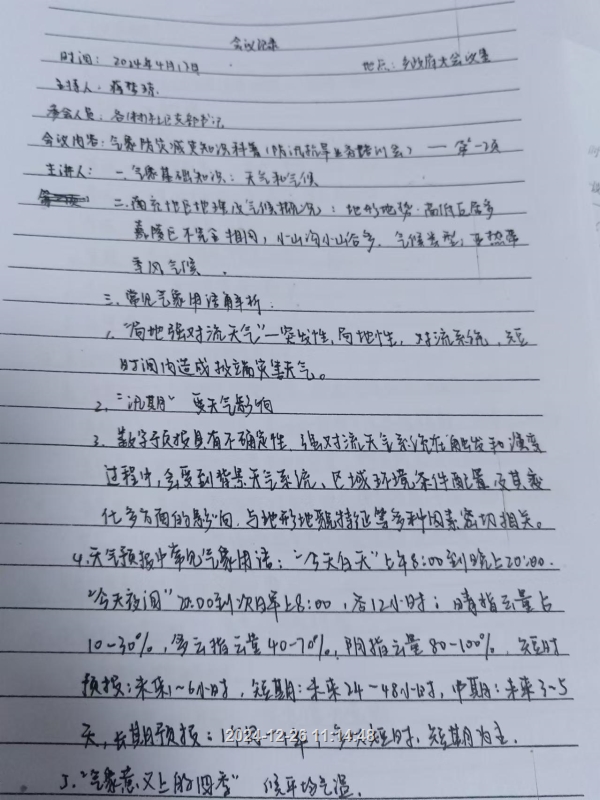 会议记录
时间：2024年4月17日 地点：乡政府大会议室
主持人：
参会人员：各村社区支部书记
会议内容：气象防灾减灾知识科普（防汛抗旱业务培训会）— 第一项
主讲人：一.气象基础知识：天气和气候
二.南充地区地理及气候概况：地形地势：高低丘居多
嘉陵区不完全相同，小山沟小山谷多，气候类型：亚热带
季风气候．
三.常见气象用语解析：
1."局地强对流天气"—突发性，局地性，对流系统，短
时间内造成极端灾害天气。
2."汛期" 受天气影响
3.数字预报具有不确定性，强对流天气系统在触发和演变
过程中，会受到背景天气系统、区域环境条件配置及其变
化多方面的影响，与地形地貌特征等多种因素密切相关。
4.天气预报中常见气象用语："今天白天"上午8:00到晚上20:00.
"今天夜间"20:00到次日早上8:00，各12小时；晴指云量占
10-30%，多云指云量40-70%，阴指云量80-100%．短时
预报：未来1~6小时，短期：未来24~48小时，中期：未来3~5
天，长期预报：短时、短期为主．
2024-12-26 11:14:48
5."气象意义上的四季" 候平均气温．